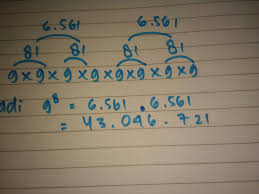 6.561 6.561
81 81 81 81
9 x 9 x 9 x 9 x 9 x 9 x 9 x 9
adi 9⁸ = 6.561 . 6.561
= 43.046.721